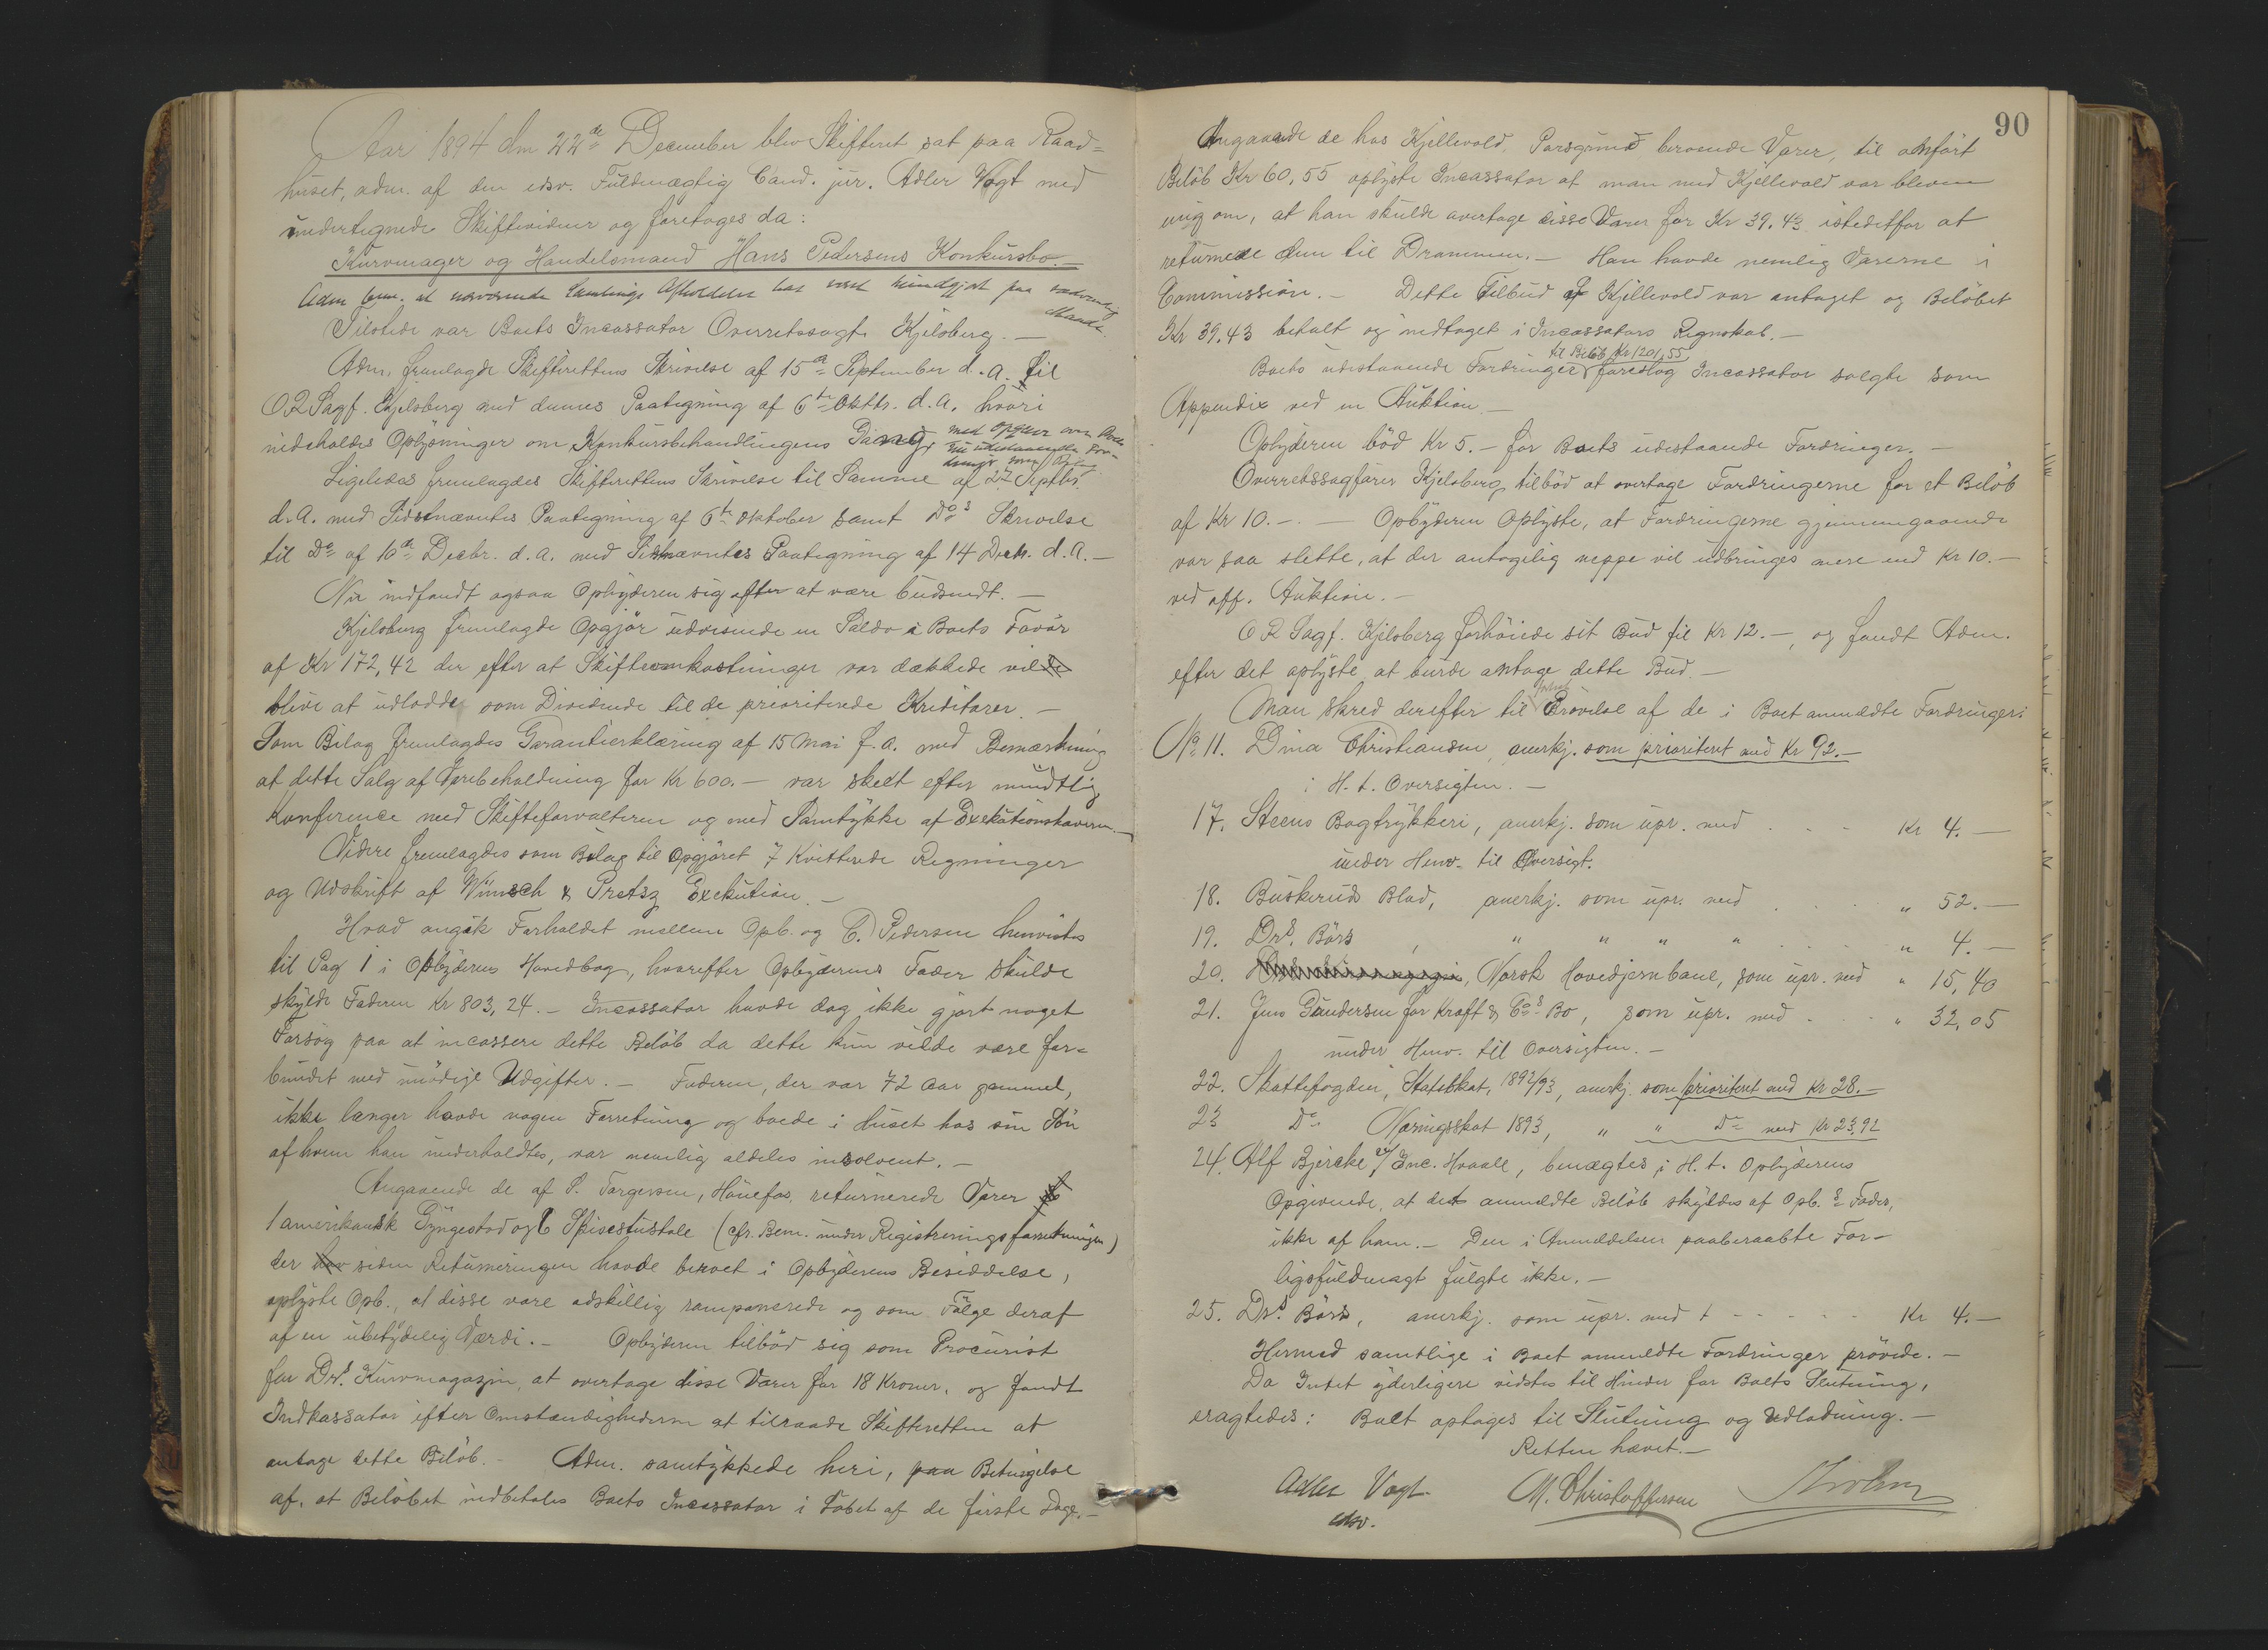 Aar 1894 den 22de December blev Skifteret sat paa Raad=
huset, adm. af den edsv. Fuldmægtig Cand. jur. Adler Vogt med
undertegnede Skiftevidner og foretoges da:
Kurvmager og Handelsmand Hans Pedersens Konkursbo.—
Adm bem. at nærværende Samlings Afholdelse har været kundgjort paa sædvanlig Maade.
Tilstede var Boets Incassator Overretssagf. Kjelsberg.—
Adm. fremlagde Skifterettens Skrivelse af 15de September d.A. til
O.R.Sagf. Kjelsberg med dennes Paategning af 6te Oktbr. d.A. hvori
indeholdes Oplysninger om Konkursbehandlingens Gang, med Opgave over Boets
udestaaende For-
dringer som Bilag
Ligeledes fremlagdes Skifterettens Skrivelse til Samme af 27 Septbr.
d.A. med Sidstnævntes Paategning af 6te Oktober samt Dos Skrivelse
til Do af 10de Decbr. d.A. med Sidstnævntes Paategning af 14 Decbr. d.A.—
Nu indfandt ogsaa Opbyderen sig efter at være budsendt.—
Kjelsberg fremlagde Opgjör udvisende en Saldo i Boets Favör
af Kr 172,42 der efter at Skifteomkostninger var dækkede vilde
blive at udlodde som Dividende til de prioriterede Kreditorer.—
Som Bilag fremlagdes Garantierklæring af 15 Mai f.A. med Bemærkning
at dette Salg af Varebeholdning for Kr 600.— var skeet efter mundtlig
Konference med Skifteforvalteren og med Samtykke af Exekutionshaveren.—
Videre fremlagdes som Bilag til Opgjöret 7 Kvitterede Regninger
og Udskrift af Wünsch & Pretsz Exekution.—
Hvad angik Forholdet mellem Opb. og C. Pedersen henvistes
til Pag 1 i Opbyderens Hovedbog, hvorefter Opbyderens Fader skulde
skylde Faderen Kr 803,24.— Incassator havde dog ikke gjort noget
Forsög paa at incassere dette Belöb da dette kun vilde være for=
bundet med unödige Udgifter.— Faderen, der var 72 Aar gammel,
ikke længer havde nogen Forretning og boede i Huset hos sin Sön
af hvem han underholdtes, var nemlig aldeles insolvent.—
Angaaende de af S. Torgersen, Hönefos, returnerede Varer
1 amerikansk Gyngestol og 6 Spisestustole (cfr. Bem. under Registreringsforretningen)
der har siden Returneringen havde beroet i Opbyderens Besiddelse,
oplyste Opb., at disse vare adskillig ramponerede og som Fölge deraf
af en ubetydelig Værdi.— Opbyderen tilböd sig som Procurist
for Drs. Kurvmagazin, at overtage disse Varer for 18 Kroner, og fandt
Indkassator efter Omstændighederne at tilraade Skifteretten at
antage dette Belöb.— Adm. samtykkede heri, paa Betingelse
af, at Belöbet indbetales Boets Incassator i Löbet af de förste Dage.—
90
Angaaende de hos Kjellevold, Porsgrund beroende Varer, til anfört
Belöb Kr 60,55 oplyste Incassator at man med Kjellevold var bleven
enig om, at han skulde overtage disse Varer for Kr 39.43 istedetfor at
returnere dem til Drammen.— Han havde nemlig Varerne i
Commission.— Dette Tilbud af Kjellevold var antaget og Belöbet
Kr 39.43 betalt og medtaget i Incassators Regnskab.—
til Belöb Kr 1201,55
Boets udestaaende Fordringer foreslog Incassator solgte som
Appendix ved en Auktion.—
Opbyderen böd Kr 5.— for Boets udestaaende Fordringer.—
Overretssagförer Kjelsberg tilböd at overtage Fordringerne for et Belöb
af Kr 10.— — Opbyderen oplyste, at Fordringerne gjennemgaaende
var saa slette, at der antagelig neppe vil udbringes mere end Kr 10.—
ved off. Auktion.—
O R Sagf. Kjelsberg forhöiede sit Bud til Kr 12.—, og fandt Adm.
efter det oplyste at burde antage dette Bud.—
Man skred derefter til Prövelse af de i Boet anmeldte Fordringer:
No 11. Dina Christiansen, anerkj. som prioriteret med Kr 92.—
i H.t. Oversigten.—
17. Steens Bogtrykkeri, anerkj. som upr. med . . . Kr 4.—
under Henv. til Oversigt.
18. Buskeruds Blad, anerkj. som upr. med . . . " 52.—
19. Drs. Börs, " " " " . . . " 4.—
20. Norsk Hovedjernbane, som upr. med " 15,40
21. Jens Gundersen for Kraft & Cos Bo, som upr. med . . . " 32,05
under Henv. til Oversigten.—
22. Skattefogden, Statsskat, 1892/93, anerkj. som prioriteret med Kr 28.—
23 Do Næringsskat 1893, " " Do med Kr 23,92
24. Alf Bjercke v/ Inc. Hvaale, benægtes i H.t. Opbyderens
Opgivende, at det anmeldte Belöb skyldes af Opb.s Fader,
ikke af ham.— Den i Anmeldelsen paaberaabte For-
ligsfuldmagt fulgte ikke.—
25. Drs. Börs, anerkj. som upr. med - - - - Kr 4.—
Hermed samtlige i Boet anmeldte Fordringer prövede.—
Da Intet yderligere vidstes til Hinder for Boets Slutning,
eragtedes: Boet optages til Slutning og Udlodning.—
Retten hævet.—
Adler Vogt M. Christoffersen
edsv.